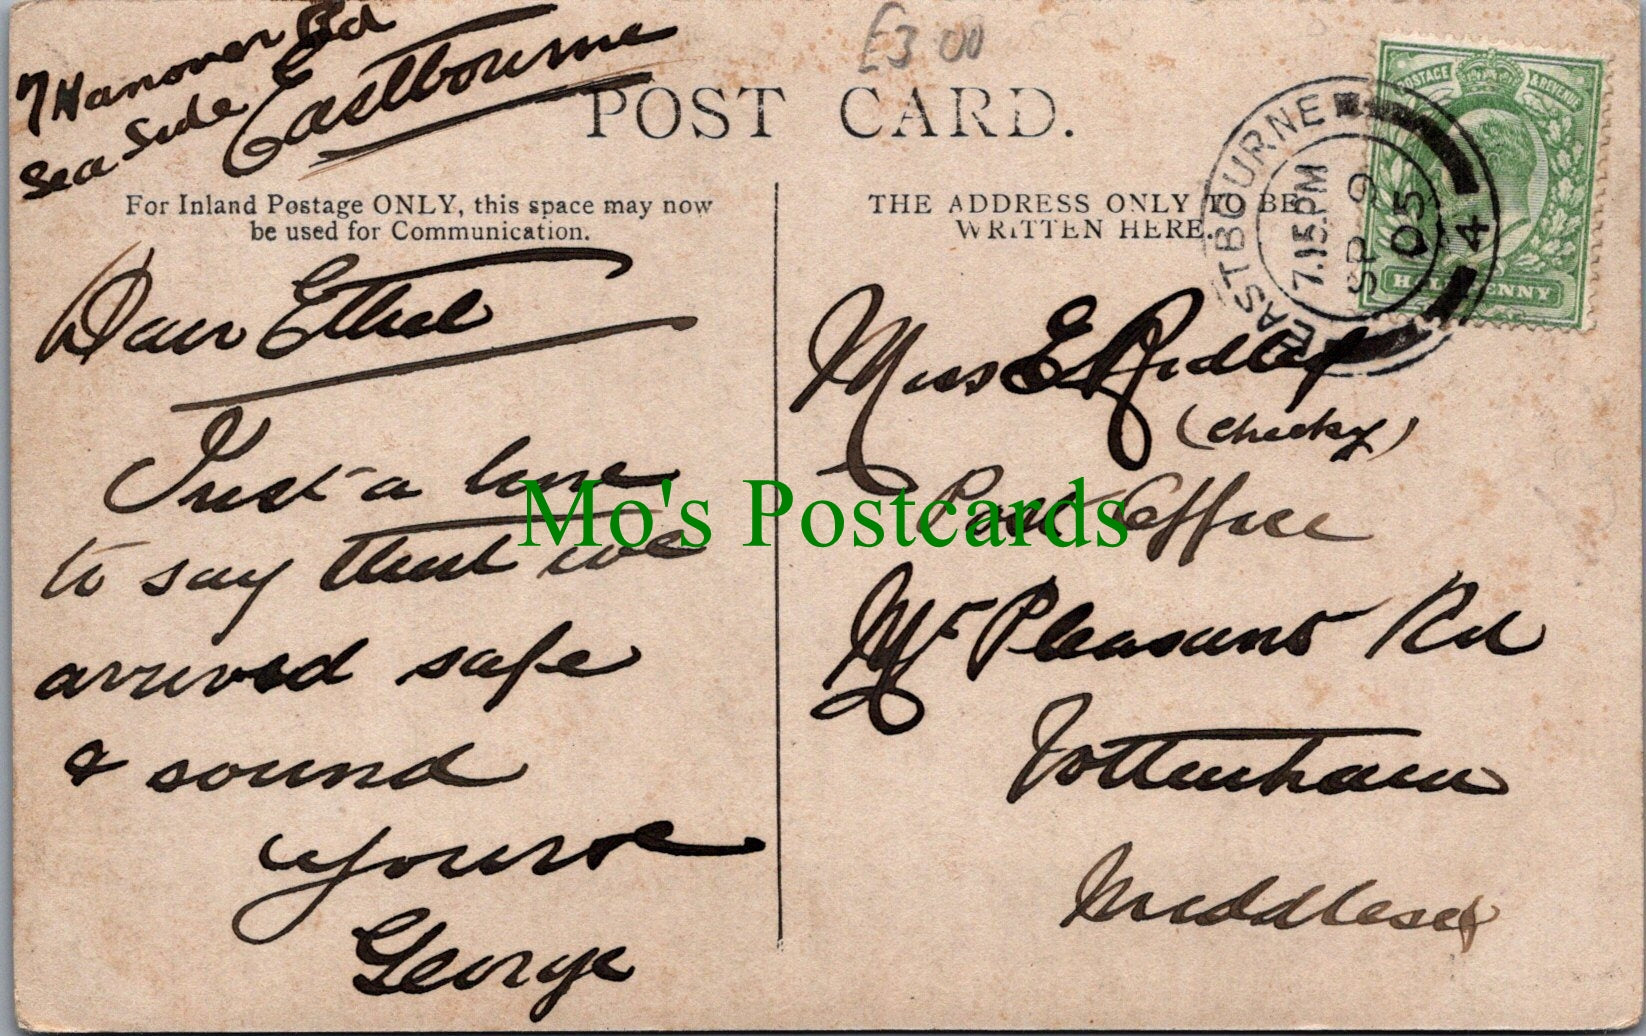 7 Hanover Rd
Sea Side E
Eastbourne
£3 00
POST CARD.
POSTAGE & REVENUE
HALFPENNY
EASTBOURNE
7.15.PM
SP 9
05
4
For Inland Postage ONLY, this space may now
be used for Communication.
THE ADDRESS ONLY TO BE
WRITTEN HERE.
Dear Ethel
Just a line
to say that we
arrived safe
& sound
yours
George
Miss E Ridley
(cheeky)
Post Office
Mt Pleasant Rd
Tottenham
Middlesex
Mo's Postcards